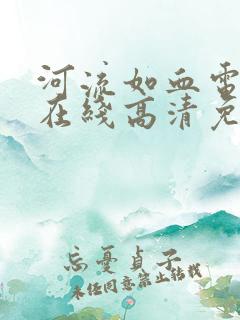 河流如血電
在綫高清免
忘憂貞子
未任同意禁止転載